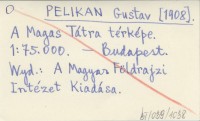 O PELIKAN Gustav [1908].
A Magas Tátra térképe.
1:75.000. — Budapest.
Wyd.: A Magyar Földrajzi
Intézet Kiadása.